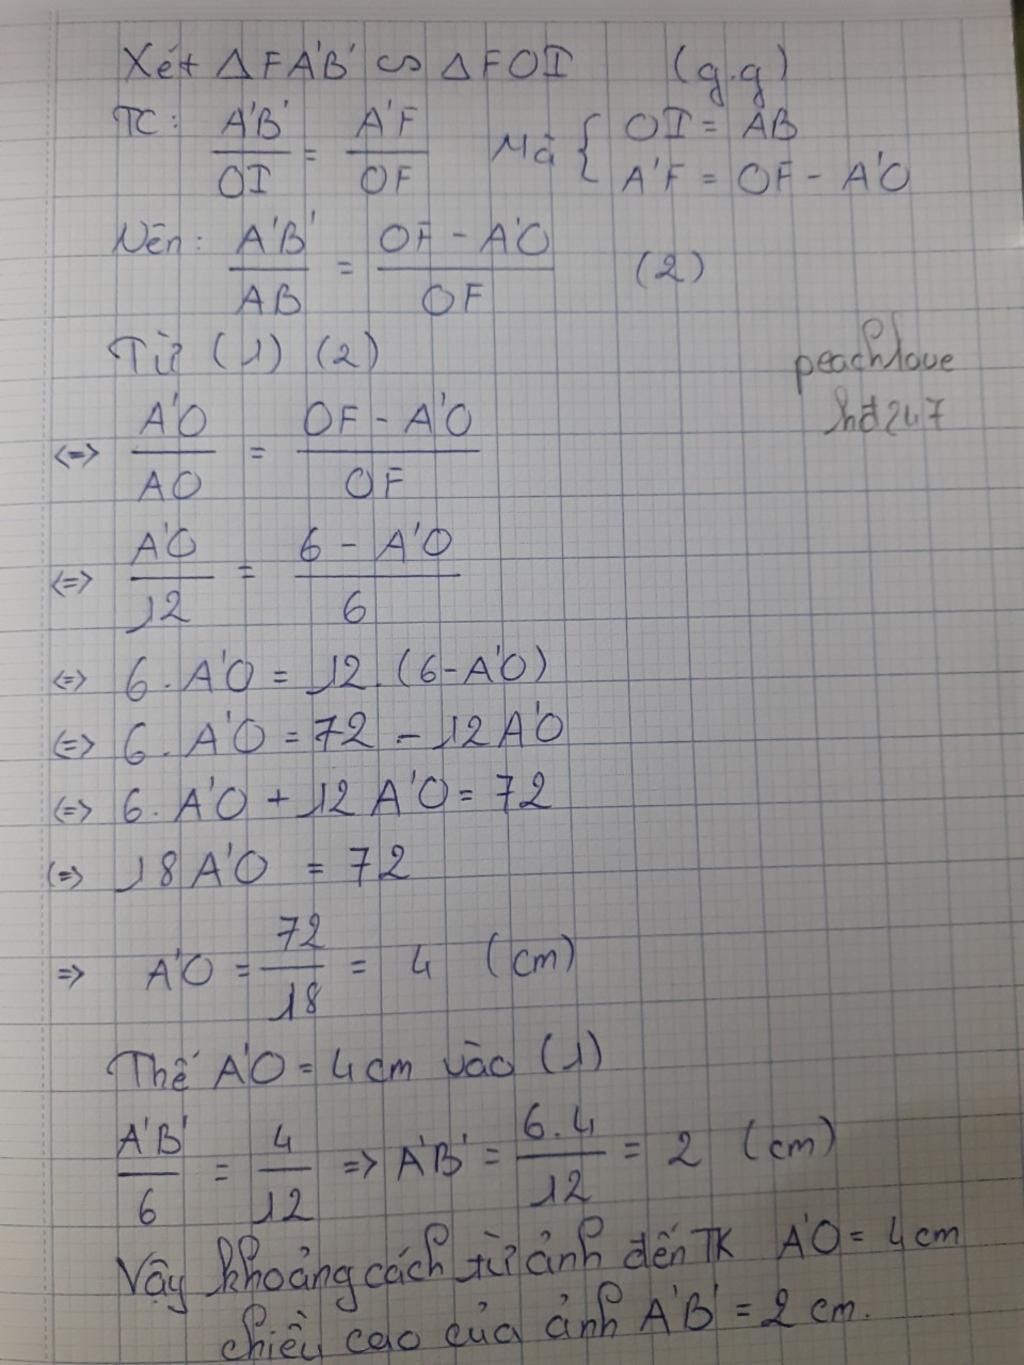 Xét ΔFA'B' ∽ ΔFOI (g.g)
TC: A'B'/OI = A'F/OF Mà { OI = AB
A'F = OF - A'O
Nên: A'B'/AB = OF - A'O/OF (2)
Từ (1) (2)
peachlove
hđ247
<=> A'O/AO = OF - A'O/OF
<=> A'O/12 = 6 - A'O/6
<=> 6. A'O = 12. (6-A'O)
<=> 6. A'O = 72 - 12A'O
<=> 6. A'O + 12 A'O = 72
<=> 18A'O = 72
=> A'O = 72/18 = 4 (cm)
Thế A'O = 4cm vào (1)
A'B'/6 = 4/12 => A'B' = 6.4/12 = 2 (cm)
Vậy khoảng cách từ ảnh đến TK A'O = 4cm
chiều cao của ảnh A'B' = 2 cm.